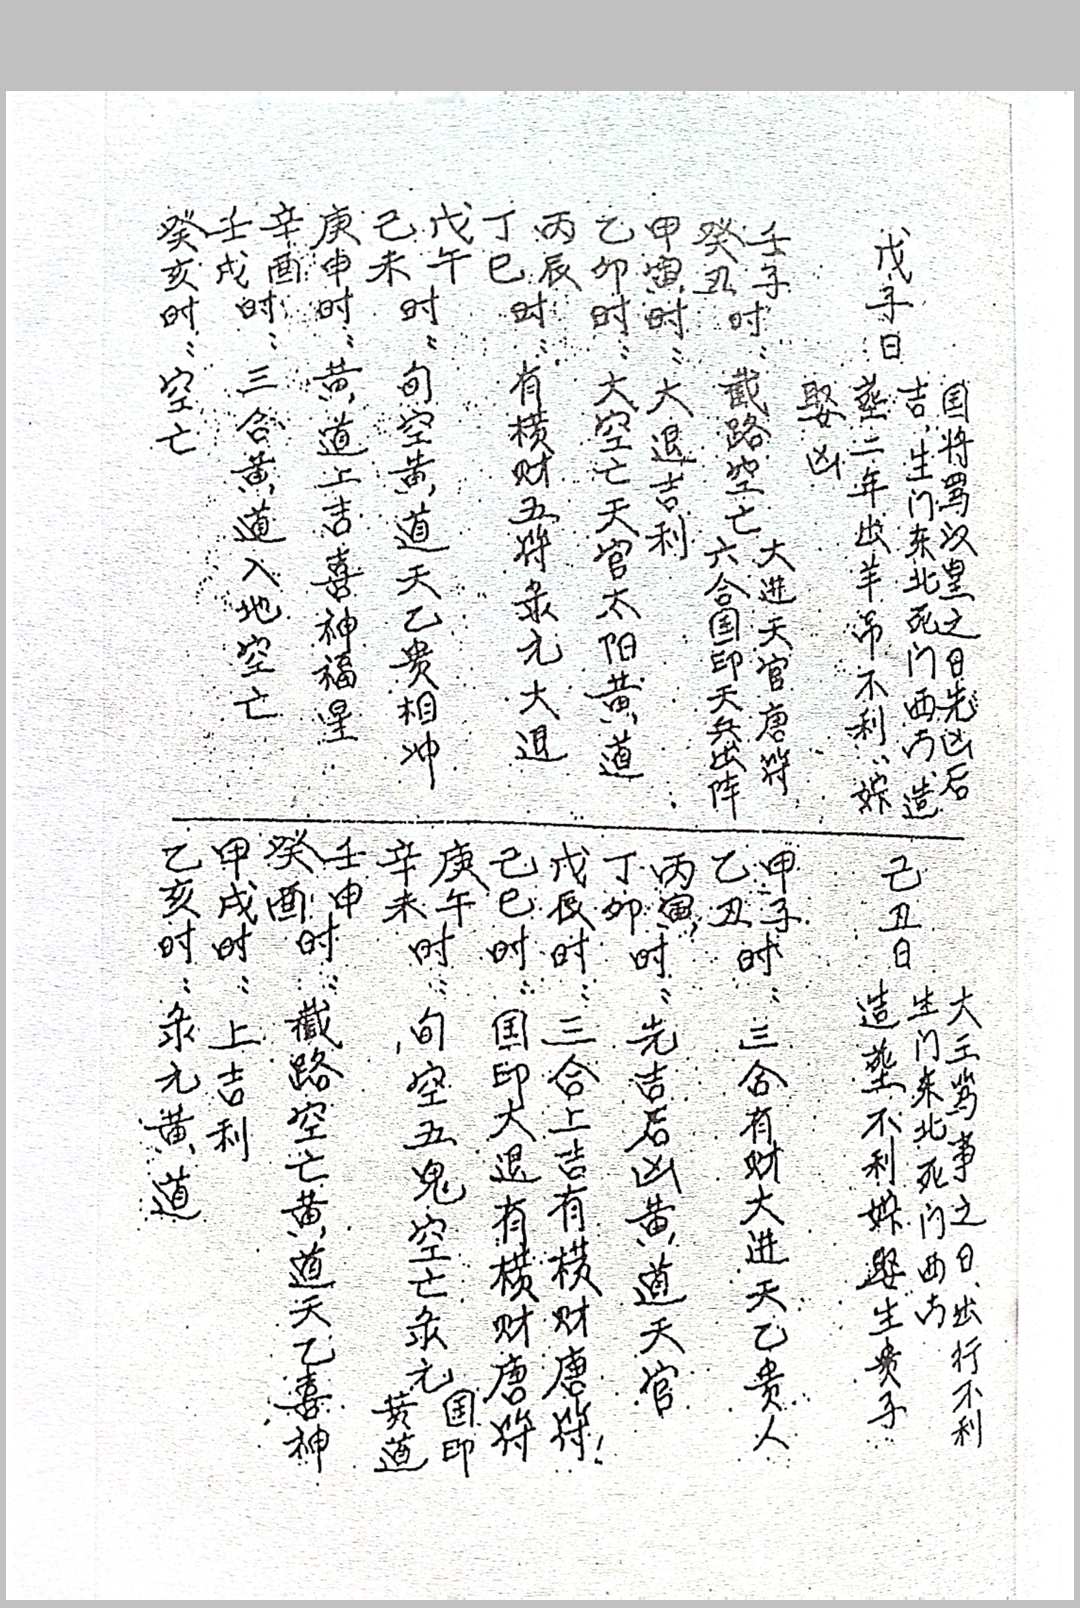 戊子日
国将骂汉皇之日先凶后
吉,生门东北死门西南造
葬二年出羊吊不利;嫁
娶凶
壬子
癸丑时:截路空亡
大进天官唐符
六合国印天兵出阵
甲寅时:大退吉利
乙卯时:大空亡天官太阳黄道
丙辰
丁巳时:有横财五符彔元大退
戊午
己未时:旬空黄道天乙贵相冲
庚申时:黄道上吉喜神福星
辛酉
壬戌时:三合黄道入地空亡
癸亥时:空亡
己丑日
大王骂事之日、出行不利
生门东北死门西南
造葬不利嫁娶生贵子
甲子
乙丑时:三合有财大进天乙贵人
丙寅
丁卯时:先吉后凶黄道天官
戊辰时:三合上吉有横财唐符
己巳时:国印大退有横财唐符
庚午
辛未时:旬空五鬼空亡彔元
国印
黄道
壬申
癸酉时:截路空亡黄道天乙喜神
甲戌时:上吉利
乙亥时:彔元黄道